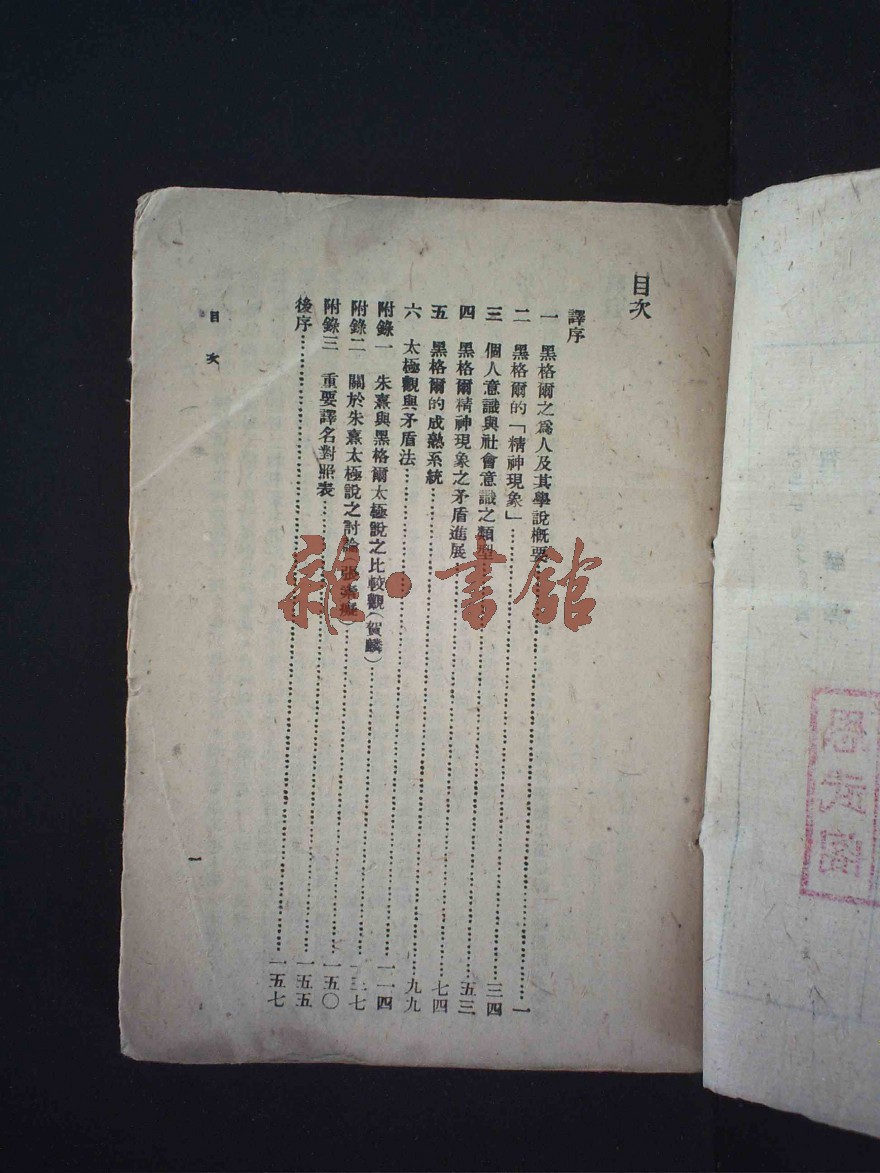 目次
譯序
一 黑格爾之爲人及其學說概要……一
二 黑格爾的「精神現象」……三四
三 個人意識與社會意識之類型……五三
四 黑格爾精神現象之矛盾進展……七四
五 黑格爾的成熟系統……九九
六 太極觀與矛盾法……一一四
附錄一 朱熹與黑格爾太極說之比較觀(賀麟)……一三七
附錄二 關於朱熹太極說之討論(張素癡)……一五〇
附錄三 重要譯名對照表……一五五
後序……一五七
目次
一
雜·書館